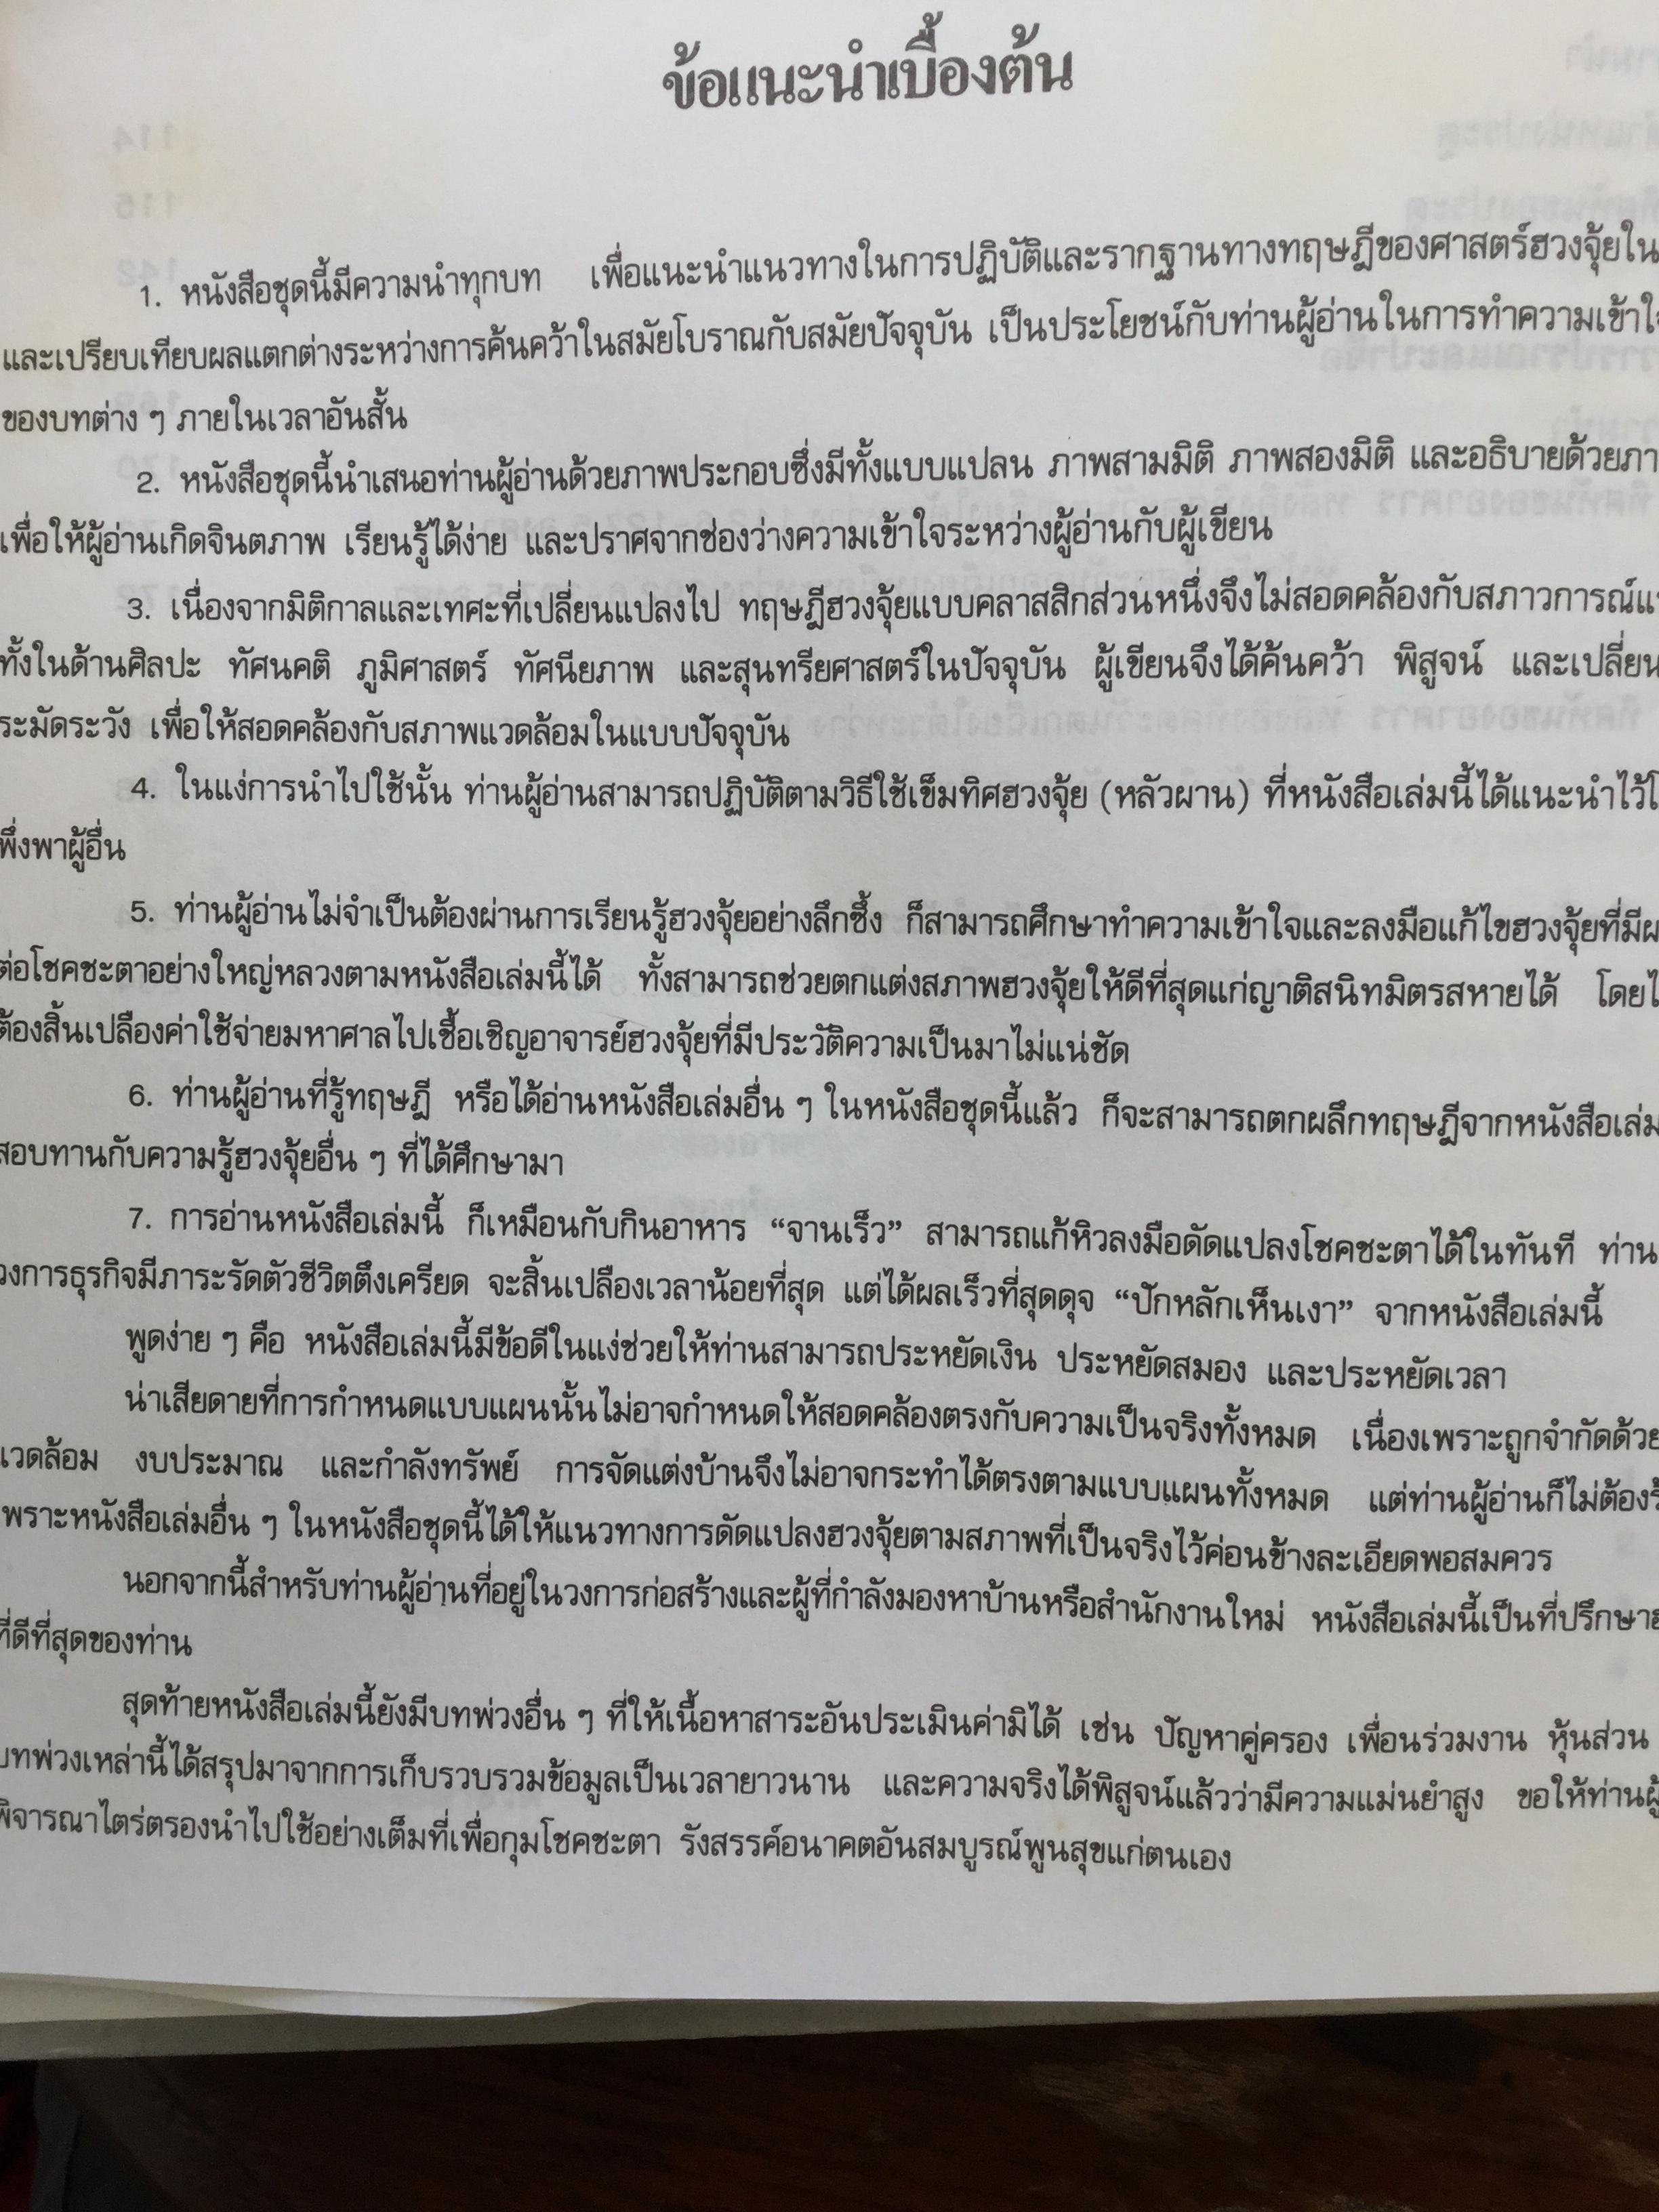 ข้อแนะนำเบื้องต้น
1. หนังสือชุดนี้มีความนำทุกบท เพื่อแนะนำแนวทางในการปฏิบัติและรากฐานทางทฤษฎีของศาสตร์ฮวงจุ้ยใน
และเปรียบเทียบผลแตกต่างระหว่างการค้นคว้าในสมัยโบราณกับสมัยปัจจุบัน เป็นประโยชน์กับท่านผู้อ่านในการทำความเข้าใจ
ของบทต่าง ๆ ภายในเวลาอันสั้น
2. หนังสือชุดนี้นำเสนอท่านผู้อ่านด้วยภาพประกอบซึ่งมีทั้งแบบแปลน ภาพสามมิติ ภาพสองมิติ และอธิบายด้วยภา
เพื่อให้ผู้อ่านเกิดจินตภาพ เรียนรู้ได้ง่าย และปราศจากช่องว่างความเข้าใจระหว่างผู้อ่านกับผู้เขียน
3. เนื่องจากมิติกาลและเทศะที่เปลี่ยนแปลงไป ทฤษฎีฮวงจุ้ยแบบคลาสสิกส่วนหนึ่งจึงไม่สอดคล้องกับสภาวการณ์แ
ทั้งในด้านศิลปะ ทัศนคติ ภูมิศาสตร์ ทัศนียภาพ และสุนทรียศาสตร์ในปัจจุบัน ผู้เขียนจึงได้ค้นคว้า พิสูจน์ และเปลี่ยน
ระมัดระวัง เพื่อให้สอดคล้องกับสภาพแวดล้อมในแบบปัจจุบัน
4. ในแง่การนำไปใช้นั้น ท่านผู้อ่านสามารถปฏิบัติตามวิธีใช้เข็มทิศฮวงจุ้ย (หลัวผาน) ที่หนังสือเล่มนี้ได้แนะนำไว้โ
พึ่งพาผู้อื่น
5. ท่านผู้อ่านไม่จำเป็นต้องผ่านการเรียนรู้ฮวงจุ้ยอย่างลึกซึ้ง ก็สามารถศึกษาทำความเข้าใจและลงมือแก้ไขฮวงจุ้ยที่มีผ
ต่อโชคชะตาอย่างใหญ่หลวงตามหนังสือเล่มนี้ได้ ทั้งสามารถช่วยตกแต่งสภาพฮวงจุ้ยให้ดีที่สุดแก่ญาติสนิทมิตรสหายได้ โดยไ
ต้องสิ้นเปลืองค่าใช้จ่ายมหาศาลไปเชื้อเชิญอาจารย์ฮวงจุ้ยที่มีประวัติความเป็นมาไม่แน่ชัด
6. ท่านผู้อ่านที่รู้ทฤษฎี หรือได้อ่านหนังสือเล่มอื่น ๆ ในหนังสือชุดนี้แล้ว ก็จะสามารถตกผลึกทฤษฎีจากหนังสือเล่ม
สอบทานกับความรู้ฮวงจุ้ยอื่น ๆ ที่ได้ศึกษามา
7. การอ่านหนังสือเล่มนี้ ก็เหมือนกับกินอาหาร “จานเร็ว” สามารถแก้หิวลงมือดัดแปลงโชคชะตาได้ในทันที ท่าน
วงการธุรกิจมีภาระรัดตัวชีวิตตึงเครียด จะสิ้นเปลืองเวลาน้อยที่สุด แต่ได้ผลเร็วที่สุดดุจ “ปักหลักเห็นเงา” จากหนังสือเล่มนี้
พูดง่าย ๆ คือ หนังสือเล่มนี้มีข้อดีในแง่ช่วยให้ท่านสามารถประหยัดเงิน ประหยัดสมอง และประหยัดเวลา
น่าเสียดายที่การกำหนดแบบแผนนั้นไม่อาจกำหนดให้สอดคล้องตรงกับความเป็นจริงทั้งหมด เนื่องเพราะถูกจำกัดด้วย
แวดล้อม งบประมาณ และกำลังทรัพย์ การจัดแต่งบ้านจึงไม่อาจกระทำได้ตรงตามแบบแผนทั้งหมด แต่ท่านผู้อ่านก็ไม่ต้อง
เพราะหนังสือเล่มอื่น ๆ ในหนังสือชุดนี้ได้ให้แนวทางการดัดแปลงฮวงจุ้ยตามสภาพที่เป็นจริงไว้ค่อนข้างละเอียดพอสมควร
นอกจากนี้สำหรับท่านผู้อ่านที่อยู่ในวงการก่อสร้างและผู้ที่กำลังมองหาบ้านหรือสำนักงานใหม่ หนังสือเล่มนี้เป็นที่ปรึกษาฮ
ที่ดีที่สุดของท่าน
สุดท้ายหนังสือเล่มนี้ยังมีบทพ่วงอื่น ๆ ที่ให้เนื้อหาสาระอันประเมินค่ามิได้ เช่น ปัญหาคู่ครอง เพื่อนร่วมงาน หุ้นส่วน
บทพ่วงเหล่านี้ได้สรุปมาจากการเก็บรวบรวมข้อมูลเป็นเวลายาวนาน และความจริงได้พิสูจน์แล้วว่ามีความแม่นยำสูง ขอให้ท่านผู้
พิจารณาไตร่ตรองนำไปใช้อย่างเต็มที่เพื่อกุมโชคชะตา รังสรรค์อนาคตอันสมบูรณ์พูนสุขแก่ตนเอง